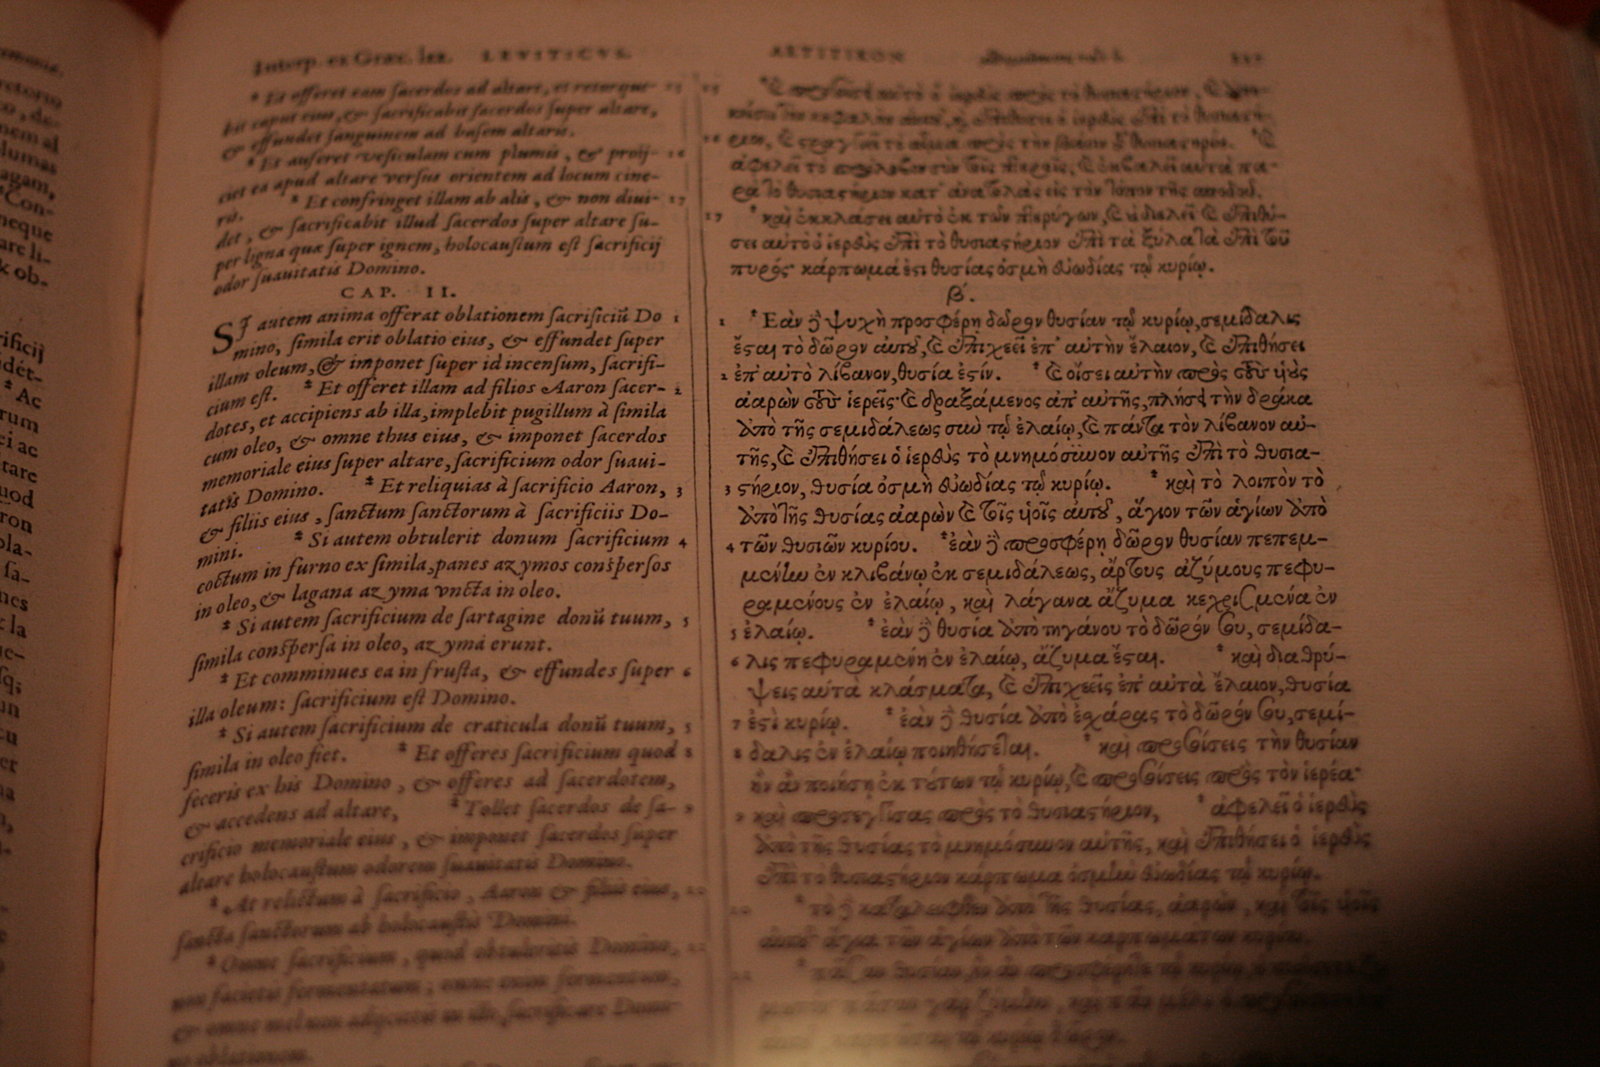 Interp. ex Græc. lxx. LEVITICVS.
* Et offeret eam sacerdos ad altare, et retorque- 15
bit caput eius, & sacrificabit sacerdos super altare,
& effundet sanguinem ad basem altaris.
* Et auferet vesiculam cum plumis, & proij- 16
ciet ea apud altare versus orientem ad locum cine-
ris. * Et confringet illam ab alis, & non diui- 17
det, & sacrificabit illud sacerdos super altare su-
per ligna quæ super ignem, holocaustum est sacrificij
odor suauitatis Domino.
CAP. II.
SI autem anima offerat oblationem sacrificiũ Do 1
mino, simila erit oblatio eius, & effundet super
illam oleum, & imponet super id incensum, sacrifi-
cium est. * Et offeret illam ad filios Aaron sacer- 2
dotes, et accipiens ab illa, implebit pugillum à simila
cum oleo, & omne thus eius, & imponet sacerdos
memoriale eius super altare, sacrificium odor suaui-
tatis Domino. * Et reliquias à sacrificio Aaron, 3
& filiis eius, sanctum sanctorum à sacrificiis Do-
mini. * Si autem obtulerit donum sacrificium 4
coctum in furno ex simila, panes azymos conspersos
in oleo, & lagana azyma vncta in oleo.
* Si autem sacrificium de sartagine donũ tuum, 5
simila conspersa in oleo, azyma erunt.
* Et comminues ea in frusta, & effundes super 6
illa oleum: sacrificium est Domino.
* Si autem sacrificium de craticula donũ tuum, 5
simila in oleo fiet. * Et offeres sacrificium quod 8
feceris ex his Domino, & offeres ad sacerdotem,
& accedens ad altare, * Tollet sacerdos de sa- 9
crificio memoriale eius, & imponet sacerdos super
altare holocaustum odorem suauitatis Domino.
* At relictum à sacrificio, Aaron & filiis eius, 10
sancta sanctorum ab holocaustis Domini.
* Omne sacrificium, quod obtuleritis Domino, 11
non facietis fermentatum; omne enim fermentum,
& omne mel non
ΛΕΥΙΤΙΚΟΝ
15 * Ͼ προσοίσει αὐτὸ ὁ ἱερεὺς πρὸς τὸ θυσιαστήριον,
τὴν κεφαλὴν αὐτοῦ, καὶ ἐπιθήσει ὁ ἱερεὺς ἐπὶ τὸ θυσιαστή-
16 ριον, καὶ στραγγιεῖ τὸ αἷμα πρὸς τὴν βάσιν τοῦ θυσιαστηρίου. * καὶ
ἀφελεῖ τὸν πρόλοβον σὺν τοῖς πτεροῖς, καὶ ἐκβαλεῖ αὐτὰ πα-
ρὰ τὸ θυσιαστήριον κατ' ἀνατολὰς εἰς τὸν τόπον τῆς σποδοῦ.
17 * καὶ ἐκκλάσει αὐτὸ ἐκ τῶν πτερύγων, καὶ οὐ διελεῖ καὶ ἐπιθή-
σει αὐτὸ ὁ ἱερεὺς ἐπὶ τὸ θυσιαστήριον ἐπὶ τὰ ξύλα τὰ ἐπὶ τοῦ
πυρός· κάρπωμά ἐστι θυσίας ὀσμὴ εὐωδίας τῷ κυρίῳ.
β'.
1 * Ἐὰν δὲ ψυχὴ προσφέρῃ δῶρον θυσίαν τῷ κυρίῳ, σεμίδαλις
ἔσται τὸ δῶρον αὐτοῦ, καὶ ἐπιχεεῖ ἐπ' αὐτὴν ἔλαιον, καὶ ἐπιθήσει
2 ἐπ' αὐτὸ λίβανον, θυσία ἐστίν. * καὶ οἴσει αὐτὴν πρὸς τοὺς υἱοὺς
ἀαρὼν τοὺς ἱερεῖς· καὶ δραξάμενος ἀπ' αὐτῆς, πλήσει τὴν δράκα
ἀπὸ τῆς σεμιδάλεως σὺν τῷ ἐλαίῳ, καὶ πάντα τὸν λίβανον αὐ-
τῆς, καὶ ἐπιθήσει ὁ ἱερεὺς τὸ μνημόσυνον αὐτῆς ἐπὶ τὸ θυσια-
3 στήριον, θυσία ὀσμὴ εὐωδίας τῷ κυρίῳ. * καὶ τὸ λοιπὸν τὸ
ἀπὸ τῆς θυσίας ἀαρὼν καὶ τοῖς υἱοῖς αὐτοῦ, ἅγιον τῶν ἁγίων ἀπὸ
4 τῶν θυσιῶν κυρίου. * ἐὰν δὲ προσφέρῃ δῶρον θυσίαν πεπεμ-
μένην ἐν κλιβάνῳ ἐκ σεμιδάλεως, ἄρτους ἀζύμους πεφυ-
ραμένους ἐν ἐλαίῳ, καὶ λάγανα ἄζυμα κεχρισμένα ἐν
5 ἐλαίῳ. * ἐὰν δὲ θυσία ἀπὸ τηγάνου τὸ δῶρόν σου, σεμίδα-
6 λις πεφυραμένη ἐν ἐλαίῳ, ἄζυμα ἔσται. * καὶ διαθρύ-
ψεις αὐτὰ κλάσματα, καὶ ἐπιχεεῖς ἐπ' αὐτὰ ἔλαιον, θυσία
7 ἐστὶ κυρίῳ. * ἐὰν δὲ θυσία ἀπὸ ἐσχάρας τὸ δῶρόν σου, σεμί-
8 δαλις ἐν ἐλαίῳ ποιηθήσεται. * καὶ προσοίσεις τὴν θυσίαν
ἣν ἂν ποιήσῃ ἐκ τούτων τῷ κυρίῳ, καὶ προσοίσεις πρὸς τὸν ἱερέα·
9 καὶ προσεγγίσας πρὸς τὸ θυσιαστήριον, * ἀφελεῖ ὁ ἱερεὺς
ἀπὸ τῆς θυσίας τὸ μνημόσυνον αὐτῆς, καὶ ἐπιθήσει ὁ ἱερεὺς
ἐπὶ τὸ θυσιαστήριον κάρπωμα ὀσμὴν εὐωδίας τῷ κυρίῳ.
10 * τὸ δὲ καταλειφθὲν ἀπὸ τῆς θυσίας, ἀαρὼν, καὶ τοῖς υἱοῖς
αὐτοῦ ἅγια τῶν ἁγίων ἀπὸ τῶν καρπωμάτων κυρίου.